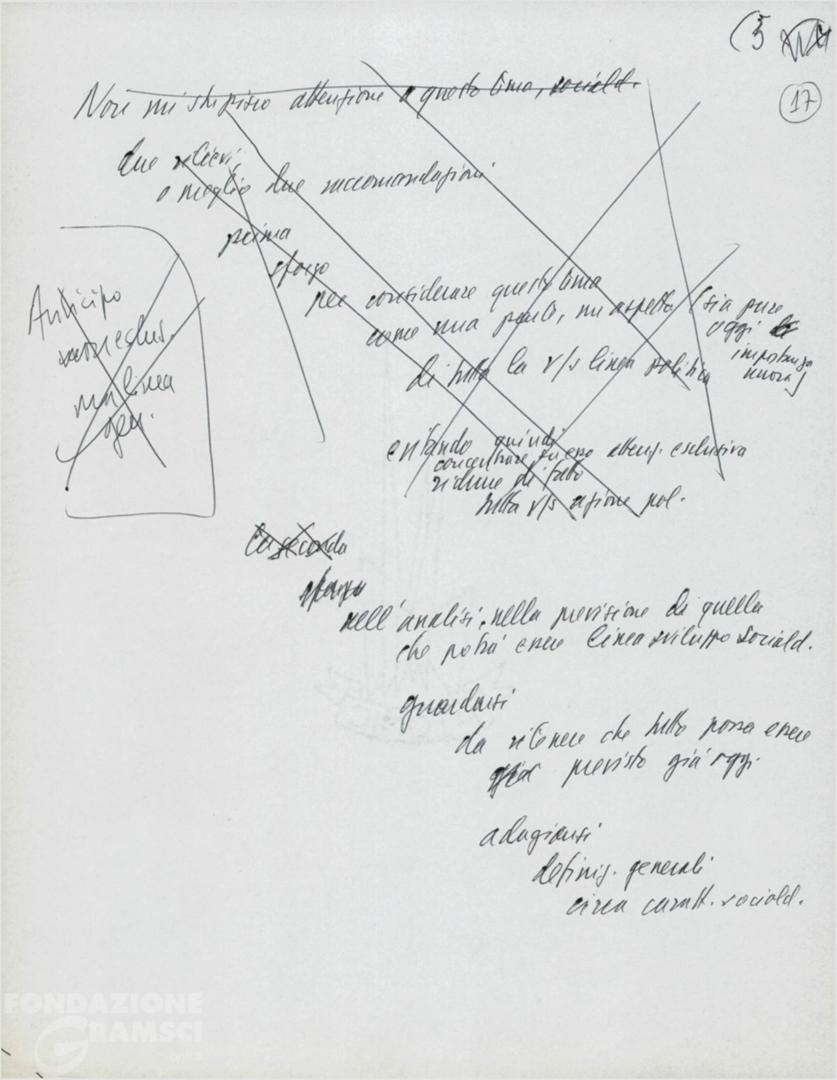 (5
17
Non mi stupisco attenzione a questo tema, sociald.
due rilievi,
o meglio due raccomandazioni
prima
sforzo
per considerare questo tema
come una parte, un aspetto (sia pure
oggi
importanza
nuova)
di tutta la v/s linea politica
Anticipo
non esclus.
ma linea
gen.
evitando quindi
concentrare su esso attenz. esclusiva
ridurre di fatto
tutta v/s azione pol.
La seconda
sforzo
nell'analisi, nella previsione di quella
che potrà essere linea sviluppo sociald.
guardarsi
da ritenere che tutto possa essere
previsto già oggi.
adagiarsi
definiz. generali
circa caratt. sociald.
FONDAZIONE
GRAMSCI